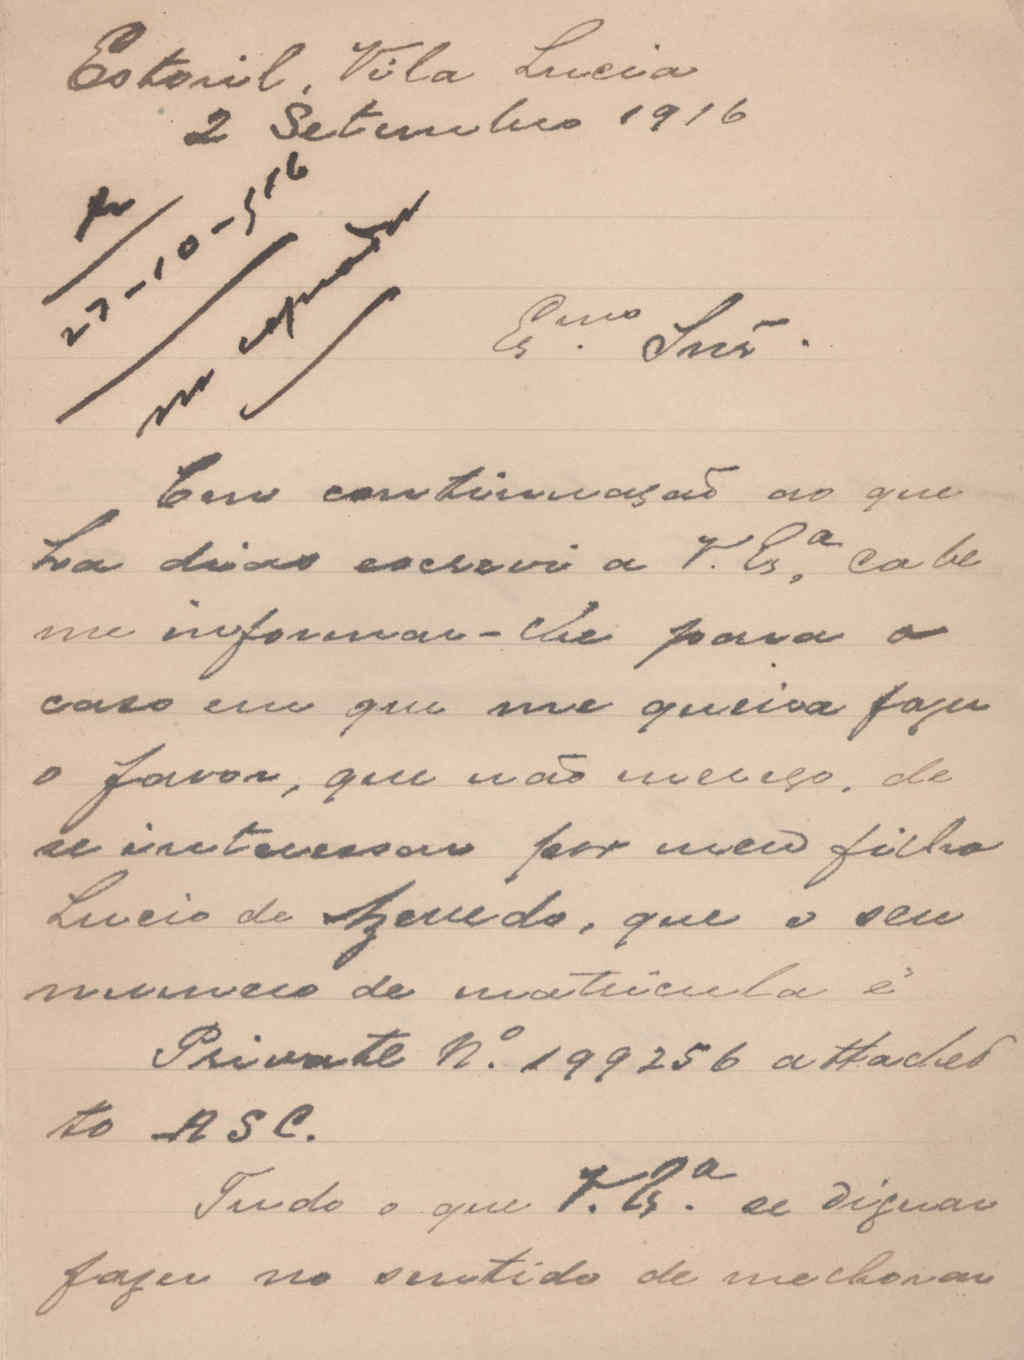 Estoril, Vila Lucia
2 Setembro 1916
27-10-916
Exmo. Snr.
Em continuação ao que
ha dias escrevi a V. Exª. cabe
me informar-lhe para o
caso em que me queira fazer
o favor, que não mereço, de
se interessar por meu filho
Lucio de Azevedo, que o seu
numero de matricula é
Private Nº. 199256 attached
to ASC.
Tudo o que V. Exª. se dignar
fazer no sentido de melhorar